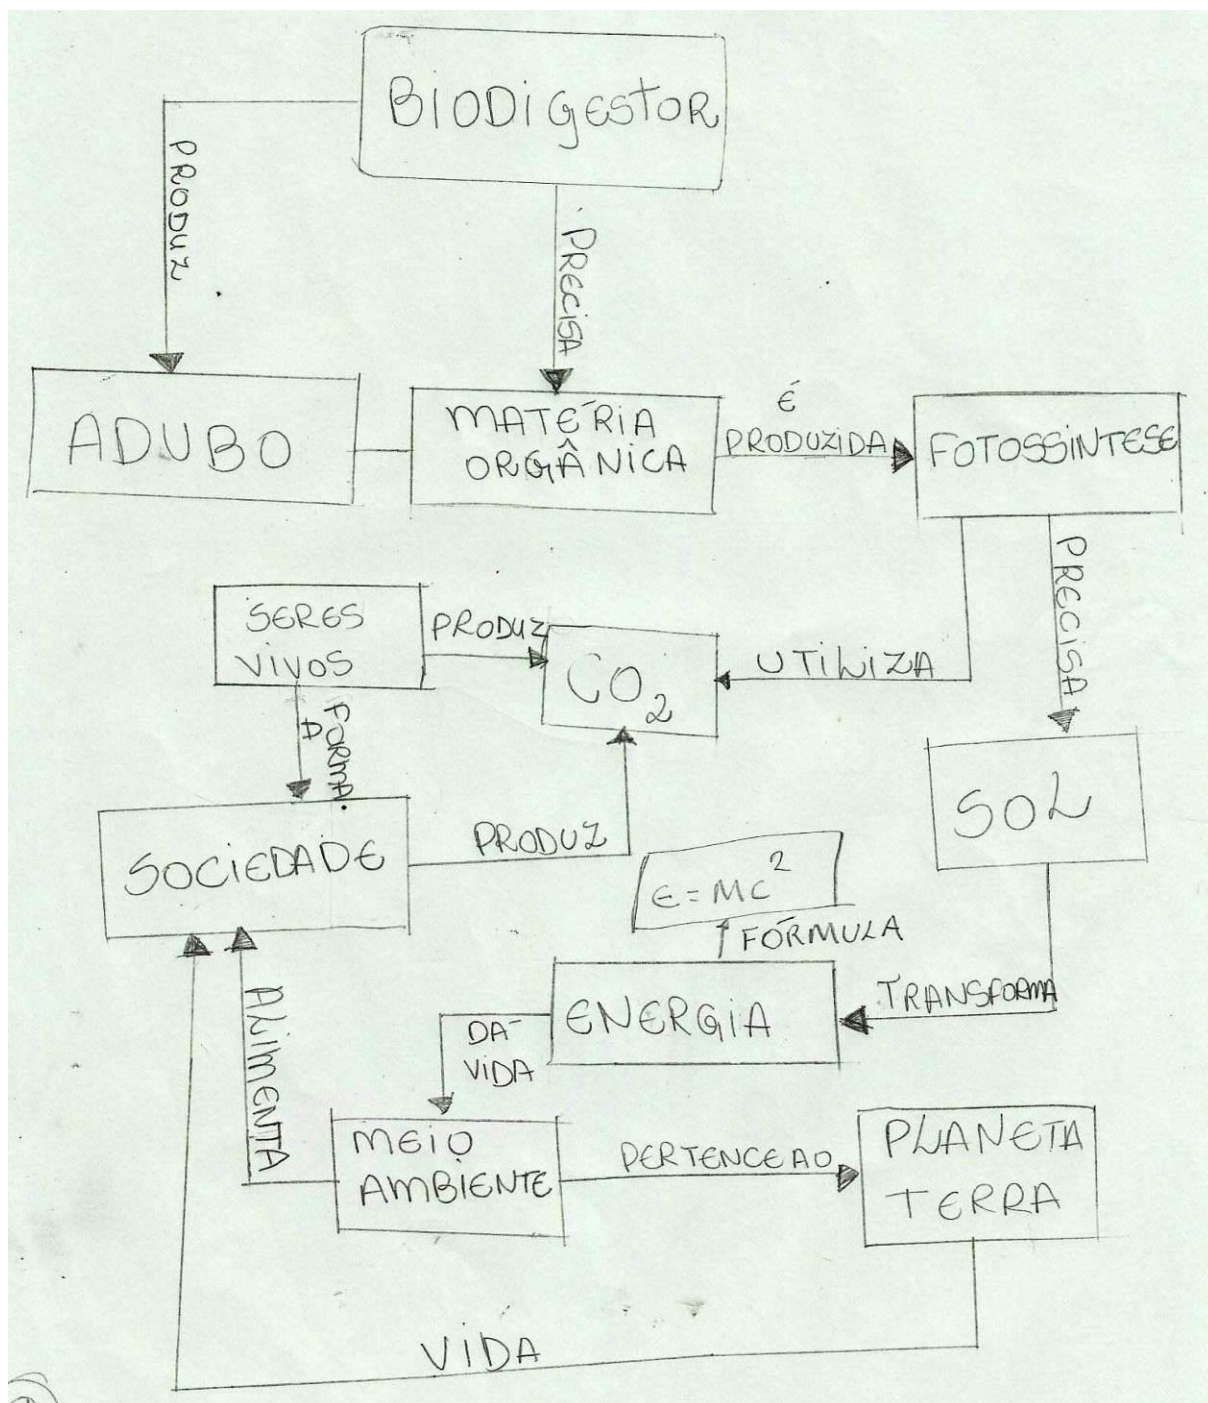 BIODIGESTOR
PRODUZ
PRECISA
ADUBO
MATÉRIA
ORGÂNICA
É
PRODUZIDA
FOTOSSINTESE
PRECISA
SERES
VIVOS
PRODUZ
CO₂
UTILIZA
FORMA
A
SOL
SOCIEDADE
PRODUZ
E=MC²
FÓRMULA
ENERGIA
TRANSFORMA
DÁ
VIDA
ALIMENTA
MEIO
AMBIENTE
PERTENCE AO
PLANETA
TERRA
VIDA